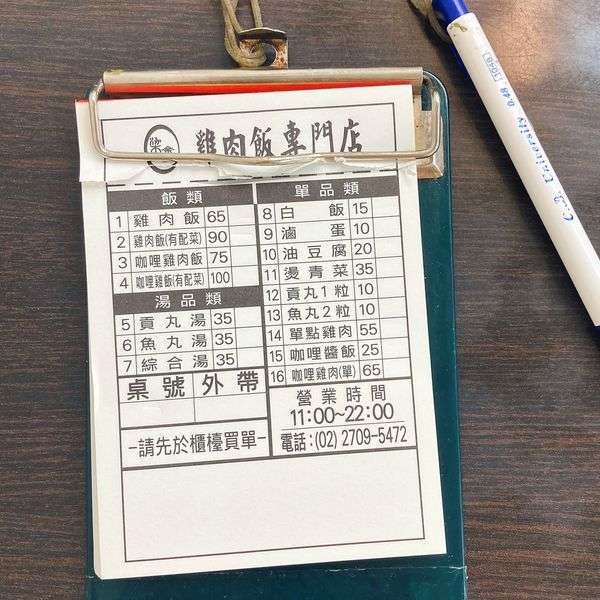 雞肉飯專門店
飯類
1 雞肉飯 65
2 雞肉飯(有配菜) 90
3 咖哩雞肉飯 75
4 咖哩雞飯(有配菜) 100
湯品類
5 貢丸湯 35
6 魚丸湯 35
7 綜合湯 35
桌號 外帶
-請先於櫃檯買單-
單品類
8 白飯 15
9 滷蛋 10
10 油豆腐 20
11 燙青菜 35
12 貢丸1粒 10
13 魚丸2粒 10
14 單點雞肉 55
15 咖哩醬飯 25
16 咖哩雞肉(單) 65
營業時間
11:00~22:00
電話:(02) 2709-5472
0.48
University